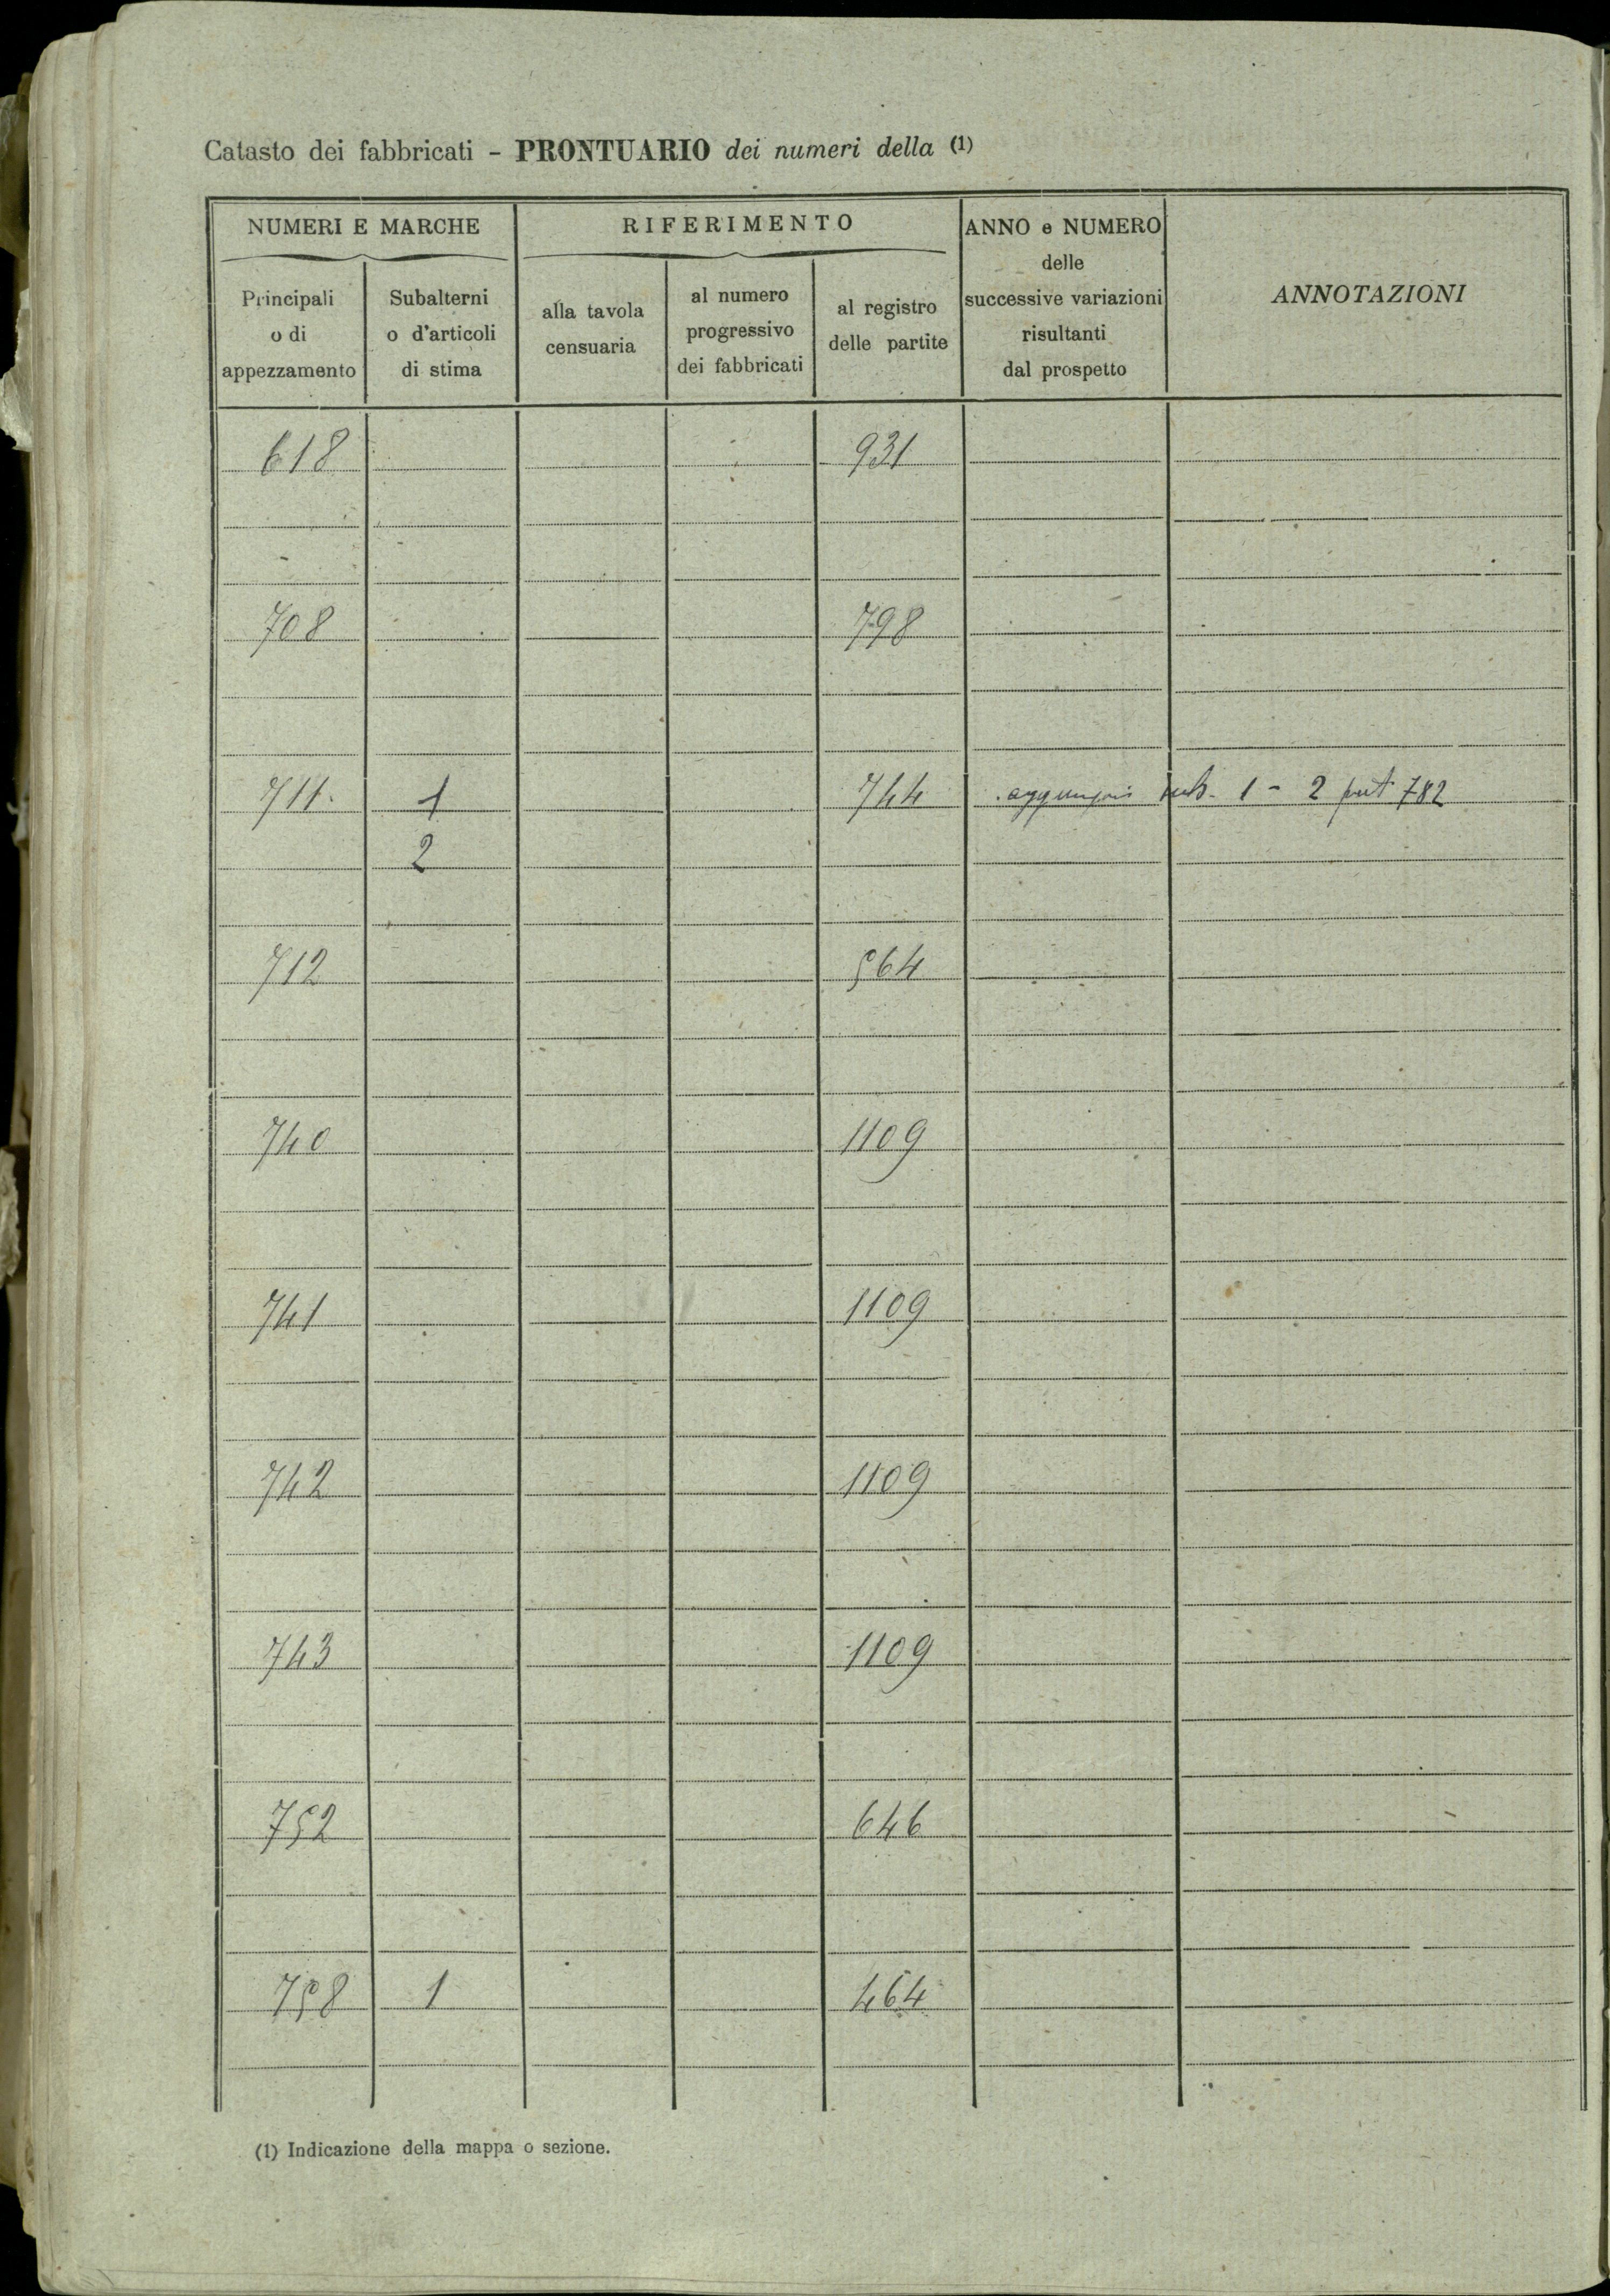 Catasto dei fabbricati - PRONTUARIO dei numeri della (1)
NUMERI E MARCHE
RIFERIMENTO
ANNO e NUMERO
delle
successive variazioni
risultanti
dal prospetto
ANNOTAZIONI
Principali
o di
appezzamento
Subalterni
o d'articoli
di stima
alla tavola
censuaria
al numero
progressivo
dei fabbricati
al registro
delle partite
618 931
708 798
711 1 744 sub. 1 - 2 782
2
712 564
740 1109
741 1109
742 1109
743 1109
752 646
758 1 464
(1) Indicazione della mappa o sezione.